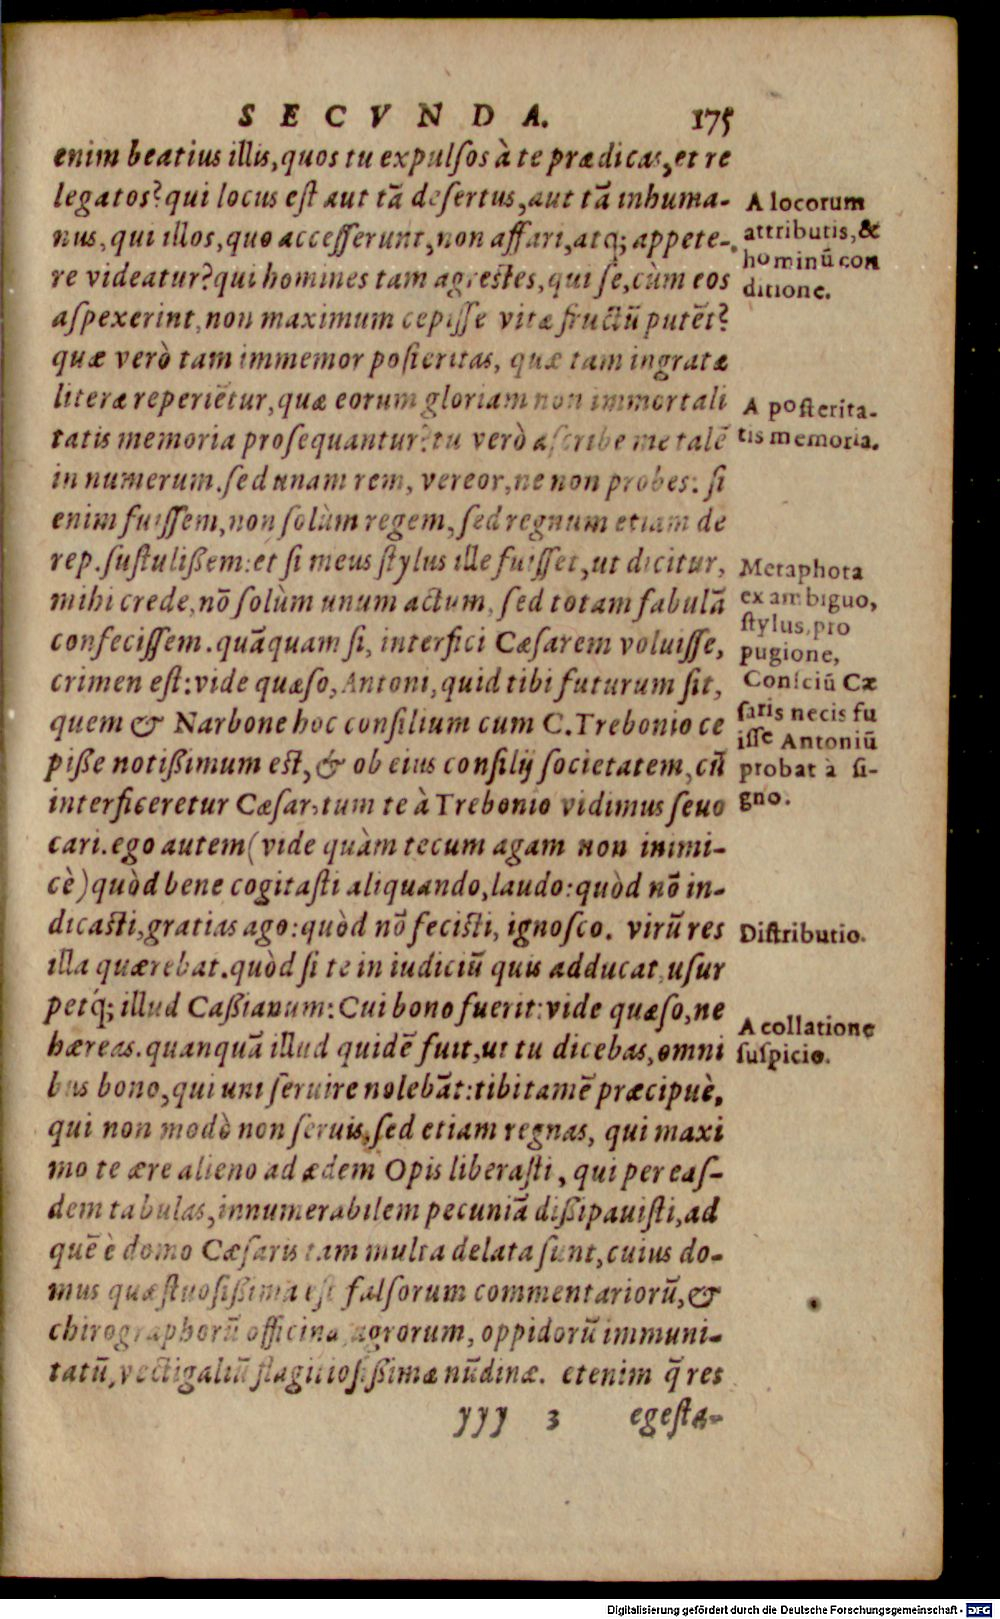 SECVNDA. 175
enim beatius illis, quos tu expulsos à te prædicas, et re
legatos? qui locus est aut tā desertus, aut tā inhuma-
nus, qui illos, quo accesserunt, non affari, atq; appete-
re videatur? qui homines tam agrestes, qui se, cùm eos
aspexerint, non maximum cepisse vitæ fructū putēt?
quæ verò tam immemor posteritas, quæ tam ingratæ
literæ reperiētur, quæ eorum gloriam non immortali
tatis memoria prosequantur? tu verò ascribe me talē
in numerum. sed unam rem, vereor, ne non probes: si
enim fuissem, non solùm regem, sed regnum etiam de
rep. sustulißem: et si meus stylus ille fuisset, ut dicitur,
mihi crede, nō solùm unum actum, sed totam fabulā
confecissem. quāquam si, interfici Cæsarem voluisse,
crimen est: vide quæso, Antoni, quid tibi futurum sit,
quem & Narbone hoc consilium cum C. Trebonio ce
piße notißimum est, & ob eius consilij societatem, cū
interficeretur Cæsar, tum te à Trebonio vidimus seuo
cari. ego autem (vide quàm tecum agam non inimi-
cè) quòd bene cogitasti aliquando, laudo: quòd nō in-
dicasti, gratias ago: quòd nō fecisti, ignosco. virū res
illa quærebat. quòd si te in iudiciū quis adducat, usur
petq́; illud Caßianum: Cui bono fuerit: vide quæso, ne
hæreas. quanquā illud quidē fuit, ut tu dicebas, omni
bus bono, qui uni seruire nolebāt: tibi tamē præcipuè,
qui non modò non seruis, sed etiam regnas, qui maxi
mo te ære alieno ad ædem Opis liberasti, qui per eas-
dem tabulas, innumerabilem pecuniā dißipauisti, ad
quē è domo Cæsaris tam multa delata sunt, cuius do-
mus quæstuosißima est falsorum commentariorū, &
chirographorū officina, agrorum, oppidorū immuni-
tatū, vectigaliū flagitiosißimæ nūdinæ. etenim q̃ res
yyy 3 egesta-
A locorum
attributis, &
hominū con
ditione.
A posterita-
tis memoria.
Metaphora
ex ambiguo,
stylus, pro
pugione,
Consciū Cæ
saris necis fu
isse Antoniū
probat à si-
gno.
Distributio.
A collatione
suspicio.
Digitalisierung gefördert durch die Deutsche Forschungsgemeinschaft - DFG